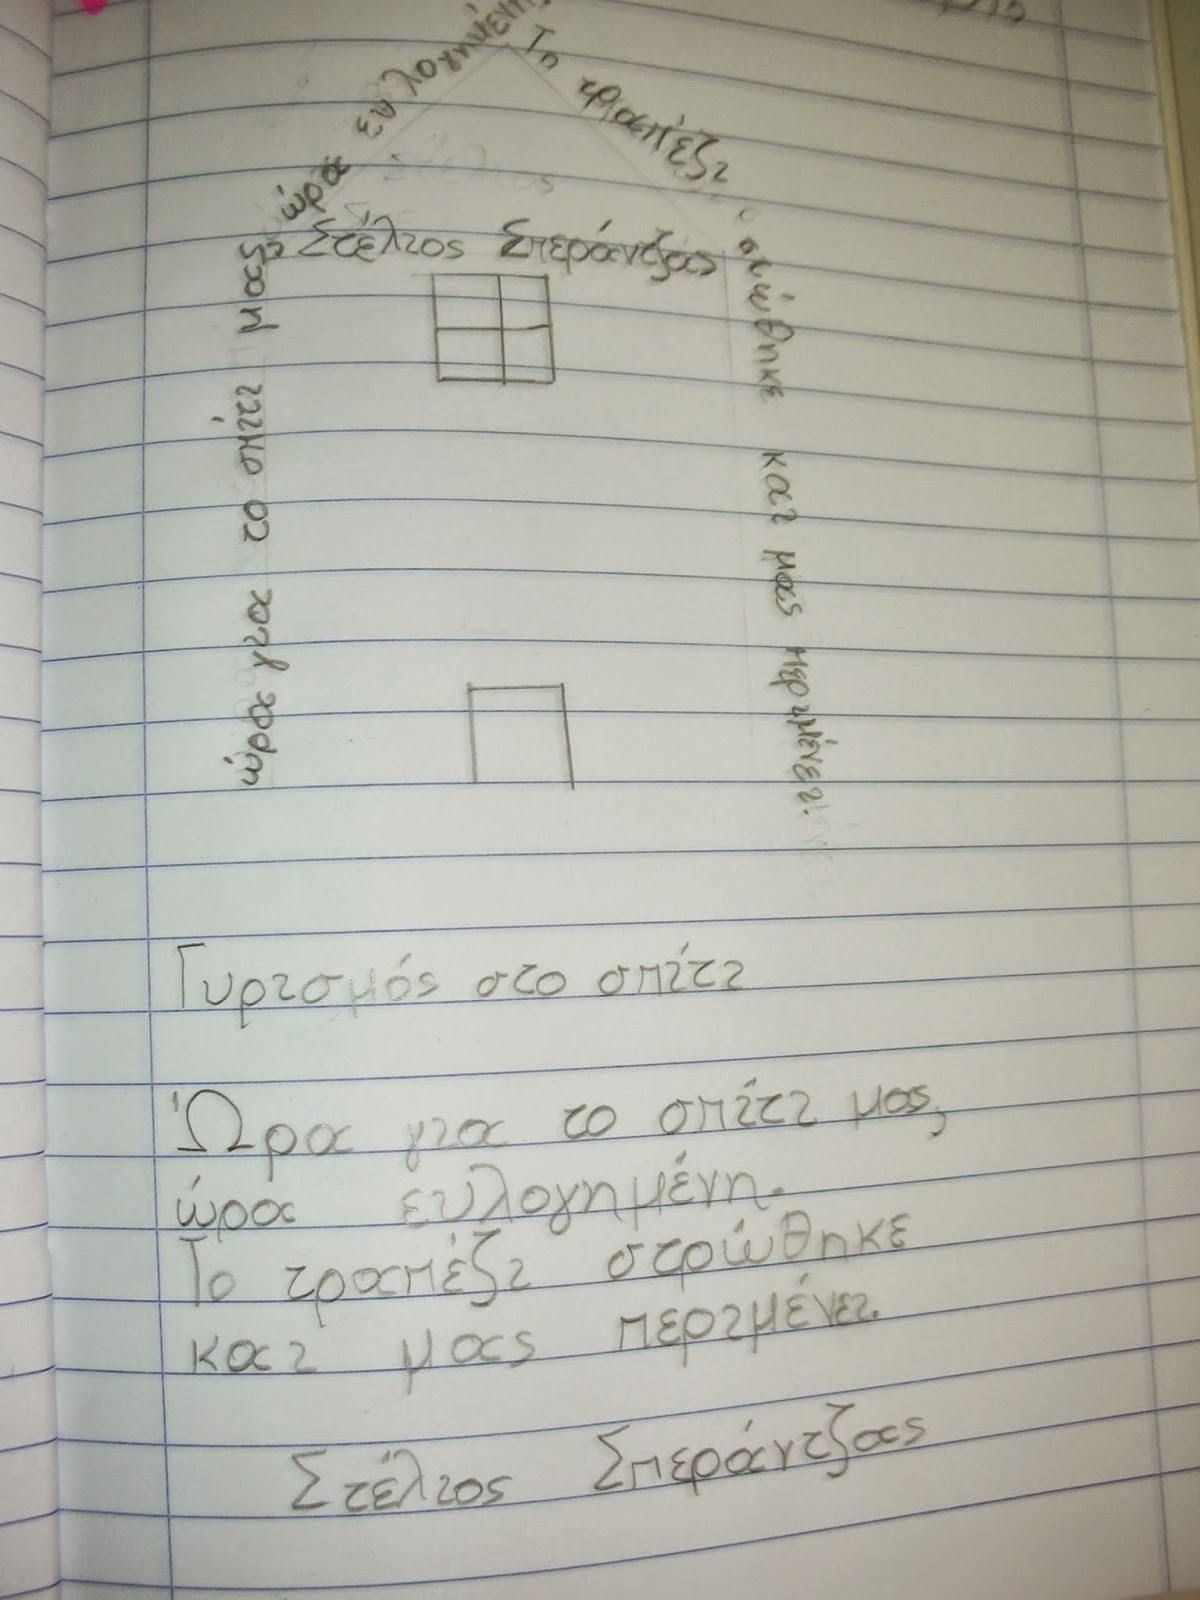 ώρα για το σπίτι μας,
ώρα ευλογημένη
Το τραπέζι
στρώθηκε και μας περιμένει.
Στέλιος Σπεράντζας
Γυρισμός στο σπίτι
Ώρα για το σπίτι μας,
ώρα ευλογημένη.
Το τραπέζι στρώθηκε
και μας περιμένει.
Στέλιος Σπεράντζας